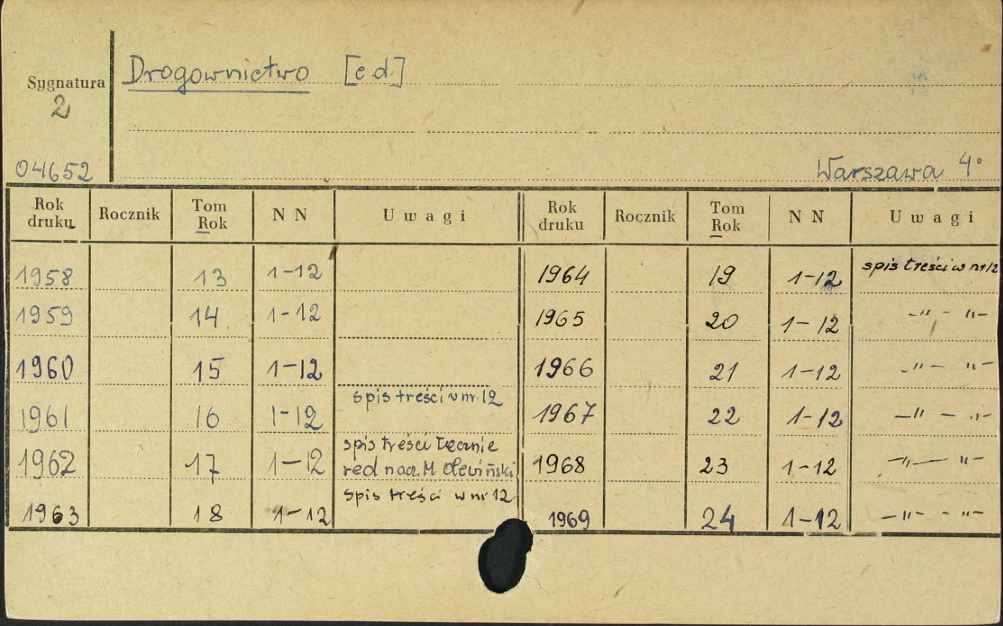 Drogownictwo [c d.]
Sygnatura
2
04652
Warszawa 4°
Rok druku Rocznik Tom Rok N N Uwagi Rok druku Rocznik Tom Rok N N Uwagi
1958 13 1-12 1964 19 1-12 spis treści w nr 12
1959 14 1-12 1965 20 1-12 -"- -"-
1960 15 1-12 1966 21 1-12 -"- -"-
1961 16 1-12 spis treści w nr 12 1967 22 1-12 -"- -"-
1962 17 1-12 spis treści łącznie red nacz. M. 1968 23 1-12 -"- -"-
1963 18 1-12 spis treści w nr 12 1969 24 1-12 -"- -"-